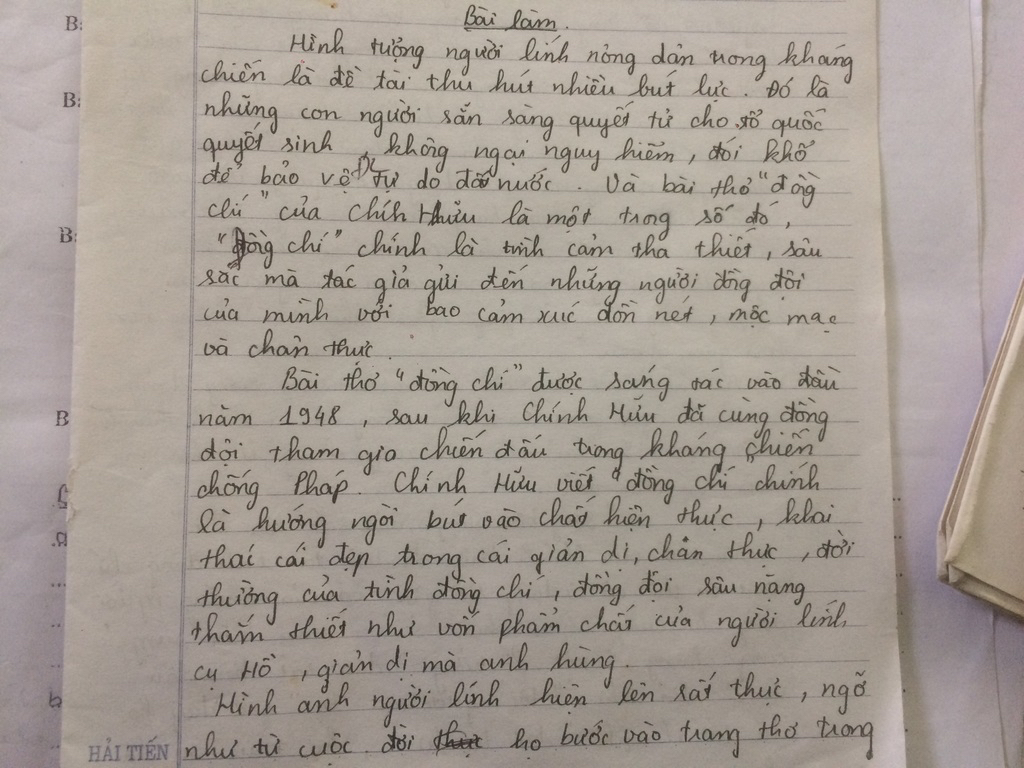 Bài làm.
Hình tượng người lính nông dân trong kháng
chiến là đề tài thu hút nhiều bút lực. Đó là
những con người sẵn sàng quyết tử cho tổ quốc
quyết sinh, không ngại nguy hiểm, đói khổ
để bảo vệ ĐL Tự do đất nước. Và bài thơ "đồng
chí" của Chính Hữu là một trong số đó,
"đồng chí" chính là tình cảm tha thiết, sâu
sắc mà tác giả gửi đến những người đồng đội
của mình với bao cảm xúc dồn nét, mộc mạc
và chân thực.
Bài thơ "đồng chí" được sáng tác vào đầu
năm 1948, sau khi Chính Hữu đã cùng đồng
đội tham gia chiến đấu trong kháng chiến
chống Pháp. Chính Hữu viết "đồng chí" chính
là hướng ngòi bút vào chất hiện thực, khai
thác cái đẹp trong cái giản dị, chân thực, đời
thường của tình đồng chí, đồng đội sâu nặng
thắm thiết như vốn phẩm chất của người lính
cụ Hồ, giản dị mà anh hùng.
Hình anh người lính hiện lên rất thực, ngỡ
HẢI TIẾN như từ cuộc đời họ bước vào trang thơ trong
B:
B:
B:
B